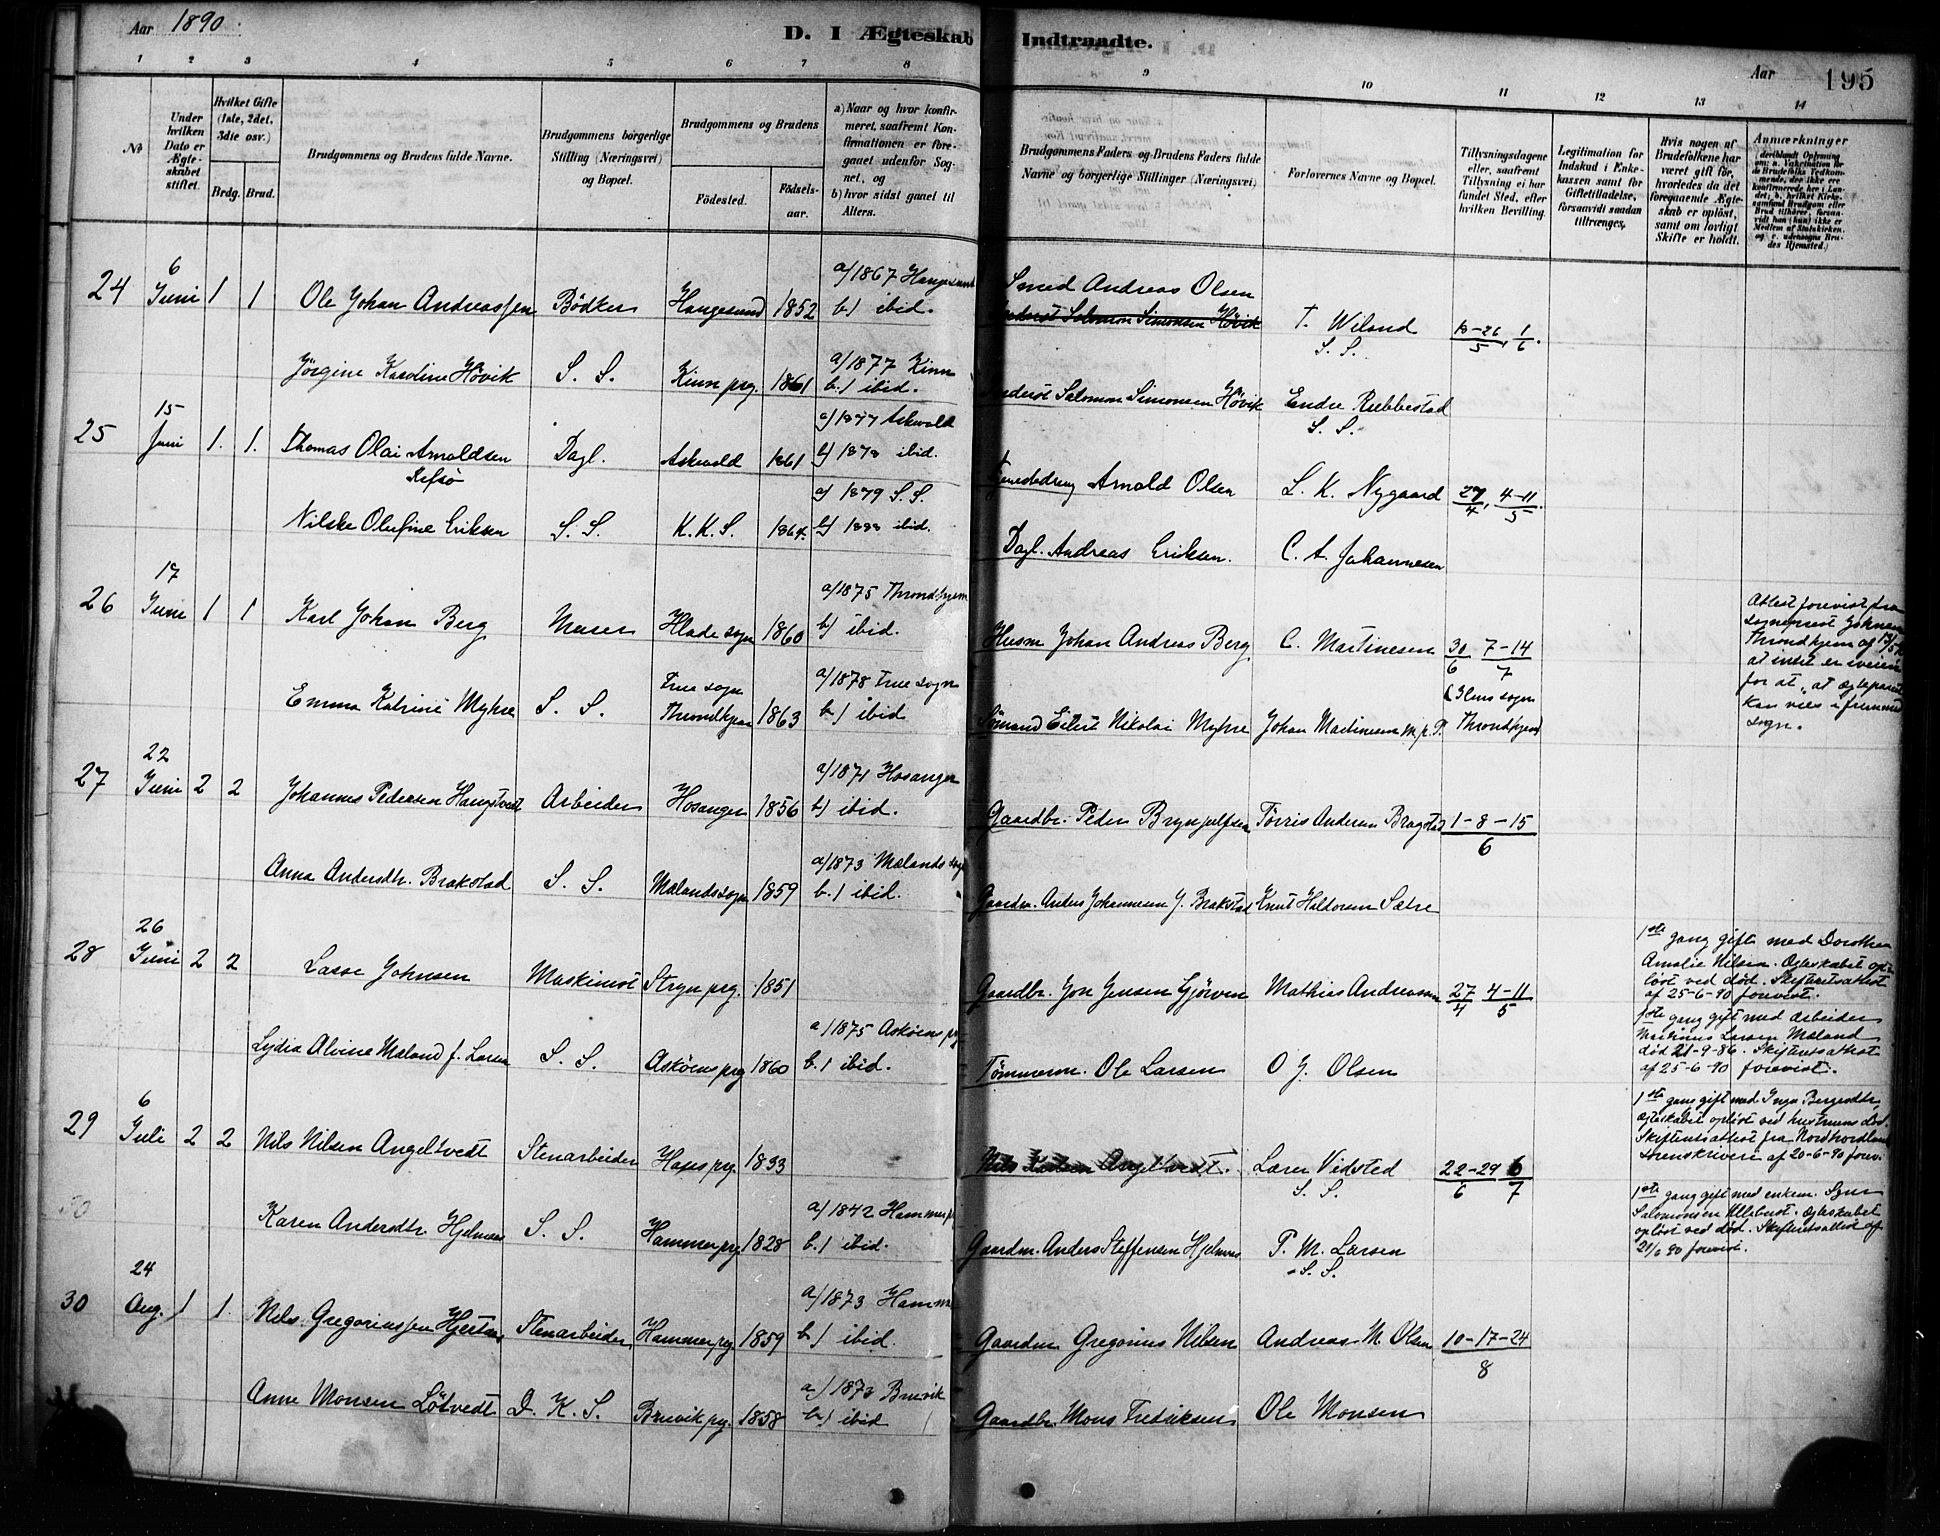 Aar 1890
D. I Ægteskab Indtraadte.
Aar 195
1 2 3 4 5 6 7 8 9 10 11 12 13 14
No
Under hvilken Dato er Ægteskabet stiftet.
Hvilket Gifte (1ste, 2det, 3die osv.)
Brdg. Brud.
Brudgommens og Brudens fulde Navne.
Brudgommens borgerlige Stilling (Næringsvei) og Bopæl.
Brudgommens og Brudens
Födested.
Födsels-aar.
a) Naar og hvor konfirmeret, saafremt Konfirmationen er foregaaet udenfor Sognet, og
b) hvor sidst gaaet til Alters.
Brudgommens Faders og Brudens Faders fulde Navne og borgerlige Stillinger (Næringsvei)
Forlovernes Navne og Bopæl.
Tillysningsdagene eller, saafremt Tillysning ei har fundet Sted, efter hvilken Bevilling.
Legitimation for Indskud i Enkekassen samt for Giftetilladelse, forsaavidt saadan tiltrænges.
Hvis nogen af Brudefolkene har været gift för, hvorledes da det foregaaende Ægteskab er oplöst, samt om lovligt Skifte er holdt.
Anmærkninger
24 6 Juni 1 1 Ole Johan Andreassen Bödker Haugesund 1852 a) 1867 Haugesund b) ibid. Smed Andreas Olsen T. Wiland S. S. 18-26/5, 1/6.
Salomon Simonsen Hövik
Jörgine Karoline Hövik S. S. Kinn prg. 1861 a) 1877 Kinn b.) ibid. Salomon Simonsen Hövik Endre Rebbestad S. S.
25 15 Juni 1. 1. Thomas Olai Arnoldsen Dagl. Askvold 1861 a) 1877 Askvold b) 1878 ibid. Arnold Olsen L. K. Nygaard 27/4, 4-11/5.
Nilske Olufine Eriksen S. S. K. K. S. 1864. a) 1879 S. S. b) 1888 ibid. Dagl. Andreas Eriksen. C. A. Johannesen
26 17 Juni 1 1 Karl Johan Berg Murer Hlade sogn 1860 a) 1875 Throndhjem b) ibid. Husm Johan Andreas Berg C. Martinesen 30/6 7-14/7
Attest forevist fra sogneprest
Throndhjem af
at intet er iveien
for at, at ægteparet
kan vies i fremmed
sogn.
Emma Katrine Myhre S. S. Frue sogn Throndhjem 1863 a) 1878 Frue sogn b.) ibid Sömand Eilert Nikolai Myhre Johan Martinesen m. p. P. Throndhjem
27 22 Juni 2 2 Johannes Pedersen Haugstvedt Arbeider Hosanger 1856 a) 1871 Hosanger b) ibid. Gaardbr. Peder Brynjulfsen Tørris Andersen Bragstad 1-8-15/6
Anna Andersdtr. Brakstad S. S. Mælandssogn 1859 a) 1873 Mælands sogn b.) ibid. Gaardm. Anders Johannesen Y. Brakstad Knut Haldorsen Sætre
28 26 Juni 2 2 Lasse Johnsen Maskinist Stryn prg. 1851 Gaardbr. Jon Jensen Gjörven Mathias Andreassen 27/4 4-11/5
1ste gang gift med Dorothea
Amalie Nilsen. Ægteskabet op-
löst ved död. Skifteretsattest
af 25-6-90 forevist.
Lydia Alvine Mæland f. Larsen S. S. Asköens prg 1860 a) 1875 Asköens prg b.) ibid. Tömmerm. Ole Larsen O J. Olsen
1ste gang gift med arbeider
Martinus Larsen Mæland
död 21-9-86. Skifteretsattest
af 25-6-90 forevist.
29 6 Juli 2 2 Nils Nilsen Angeltvedt Stenarbeider Haus prg. 1833 Nils Angeltvedt. Laren Vidsted S. S. 22-29/6 6/7
1ste gang gift med Inga Bergesdtr.
ægteskabet oplöst ved hustruens död.
Skifteretsattest fra Nordhordland
Sorenskriveri af 20-6-90 forev.
30
Karen Andersdtr. Hjelmaas S. S. Hammer prg 1828 a) 1842 Hammer prg b.) ibid. Gaardm. Anders Steffensen Hjelmaas P. M. Larsen S. S.
1ste gang gift med enkem.
Salomonsen Ulleberst. Ægteskabet
oplöst ved död. Skifteretsattest af
21/6 90 forevist.
30 24 Aug. 1 1. Nils Gregoriussen Hjertaas Stenarbeider Hammer prg. 1859 a) 1873 Hammer b.) ibid. Gaardm. Gregorius Nilsen Andreas M. Olsen 10-17-24/8
Anne Monsen Lötvedt D. K. S. Bruvik prg. 1858 a) 1873 Bruvik b.) ibid Gaardbr. Mons Fredriksen Ole Monsen